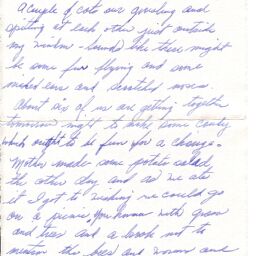 A couple of cats are growling and
spitting at each other just outside
my window - sounds like there might
be some fur flying and some
mixed ears and scratched noses.
About six of us are getting together
tomorrow night to make some candy
which ought to be fun for a change.
Mother made some potato salad
the other day and as we ate
it I got to wishing we could go
on a picnic. You know with grass
and trees and a brook not to
mention the bees and worms and